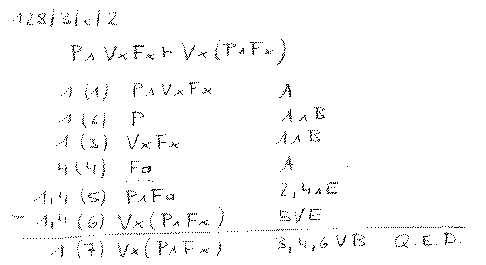 128/3/c/2
P∧VxFx⊢Vx(P∧Fx)
1 (1) P∧VxFx A
1 (2) P 1∧B
1 (3) VxFx 1∧B
4 (4) Fa A
1,4 (5) P∧Fa 2,4∧E
1,4 (6) Vx(P∧Fx) 5VE
1 (7) Vx(P∧Fx) 3,4,6VB Q.E.D.